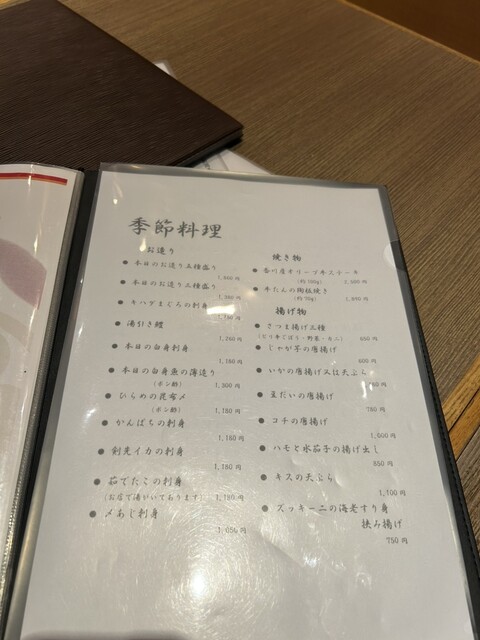 季節料理
お造り
● 本日のお造り五種盛り
1,950円
● 本日のお造り三種盛り
● キハダまぐろの刺身
● 湯引き鱧
1,260円
● 本日の白身刺身
1,160円
● 本日の白身魚の薄造り
(ポン酢) 1,300円
● ひらめの昆布〆
(ポン酢) 1,180円
● かんぱちの刺身
1,160円
● 剣先イカの刺身
1,180円
● 茹でたこの刺身
(お店で湯がいてあります) 1,180円
● 〆あじ刺身
1,050円
焼き物
● 香川産オリーブ牛ステーキ
(約100g) 2,500円
● 牛たんの陶板焼き
(約70g) 1,890円
揚げ物
● さつま揚げ三種
(ピリ辛ごぼう・野菜・たこ) 650円
● じゃが芋の唐揚げ
600円
● いかの唐揚げ又は天ぷら
● 豆だいの唐揚げ
780円
● コチの唐揚げ
1,000円
● ハモと水茄子の揚げ出し
850円
● キスの天ぷら
1,100円
● ズッキーニの海老すり身
挟み揚げ
750円